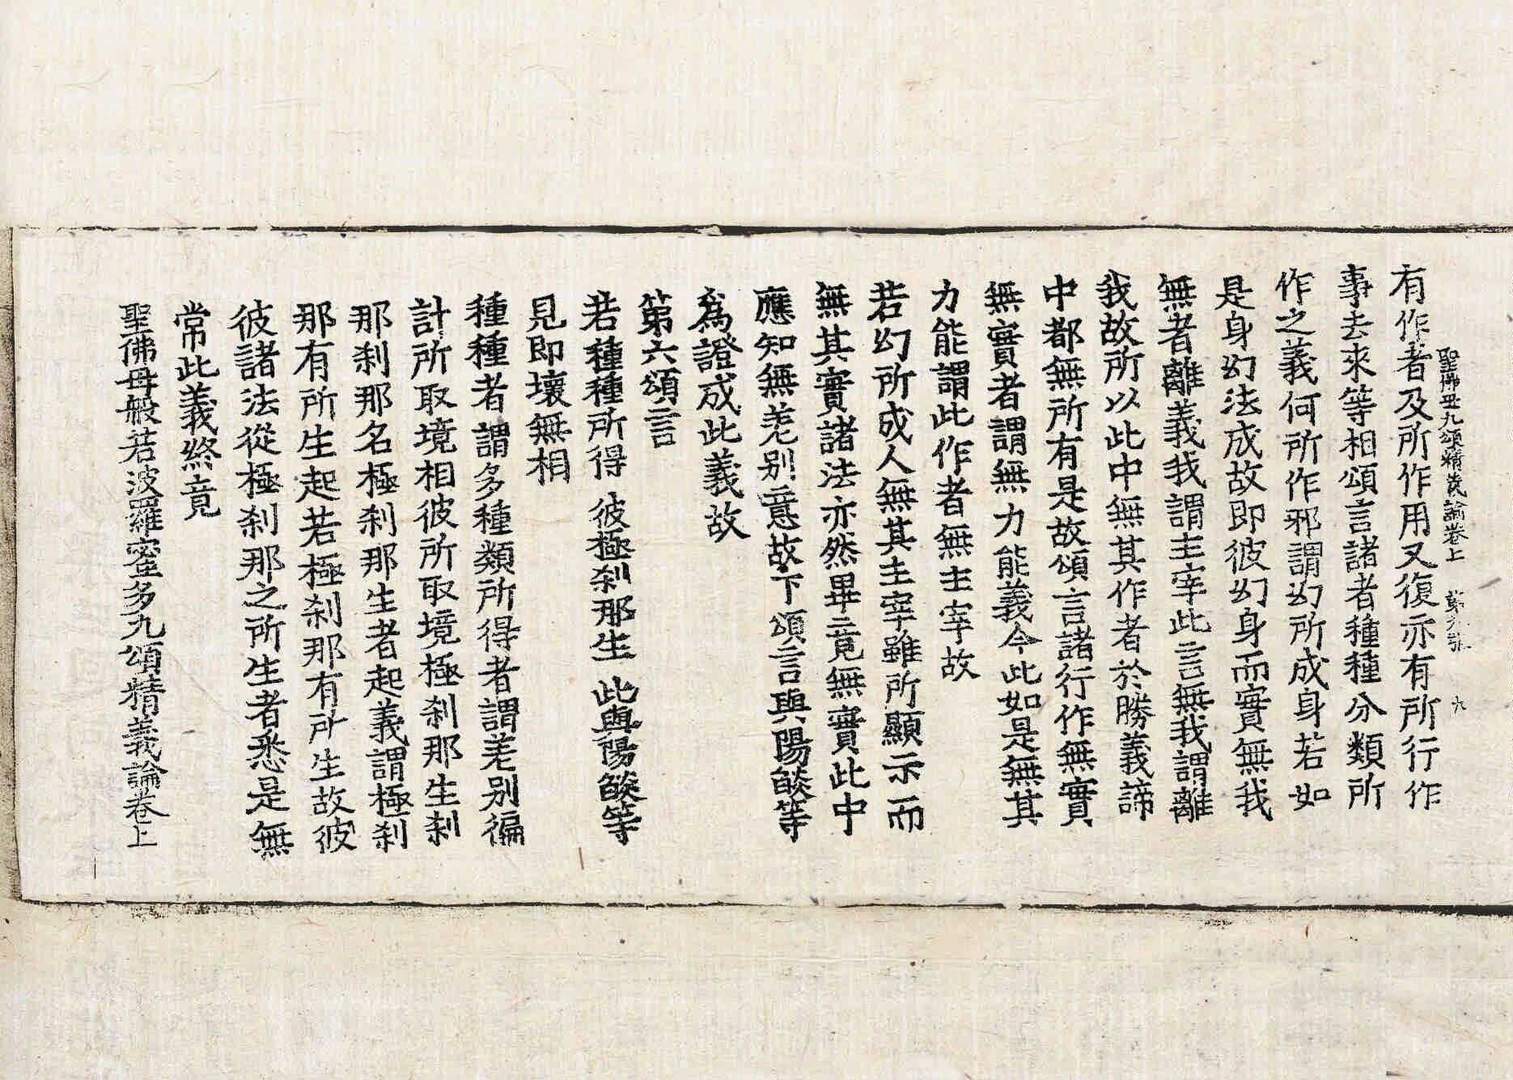 聖佛母九頌精義論卷上 第九張 九
有作者及所作用又復亦有所行作
事去來等相頌言諸者種種分類所
作之義何所作邪謂幻所成身若如
是身幻法成故即彼幻身而實無我
無者離義我謂主宰此言無我謂離
我故所以此中無其作者於勝義諦
中都無所有是故頌言諸行作無實
無實者謂無力能義今此如是無其
力能謂此作者無主宰故
若幻所成人無其主宰雖所顯示而
無其實諸法亦然畢竟無實此中
應知無差別意故下頌言與陽燄等
為證成此義故
第六頌言
若種種所得 彼極剎那生 此與陽燄等
見即壞無相
種種者謂多種類所得者謂差別徧
計所取境相彼所取境極剎那生剎
那剎那名極剎那生者起義謂極剎
那有所生起若極剎那有所生故彼
彼諸法從極剎那之所生者悉是無
常此義終竟
聖佛母般若波羅蜜多九頌精義論卷上